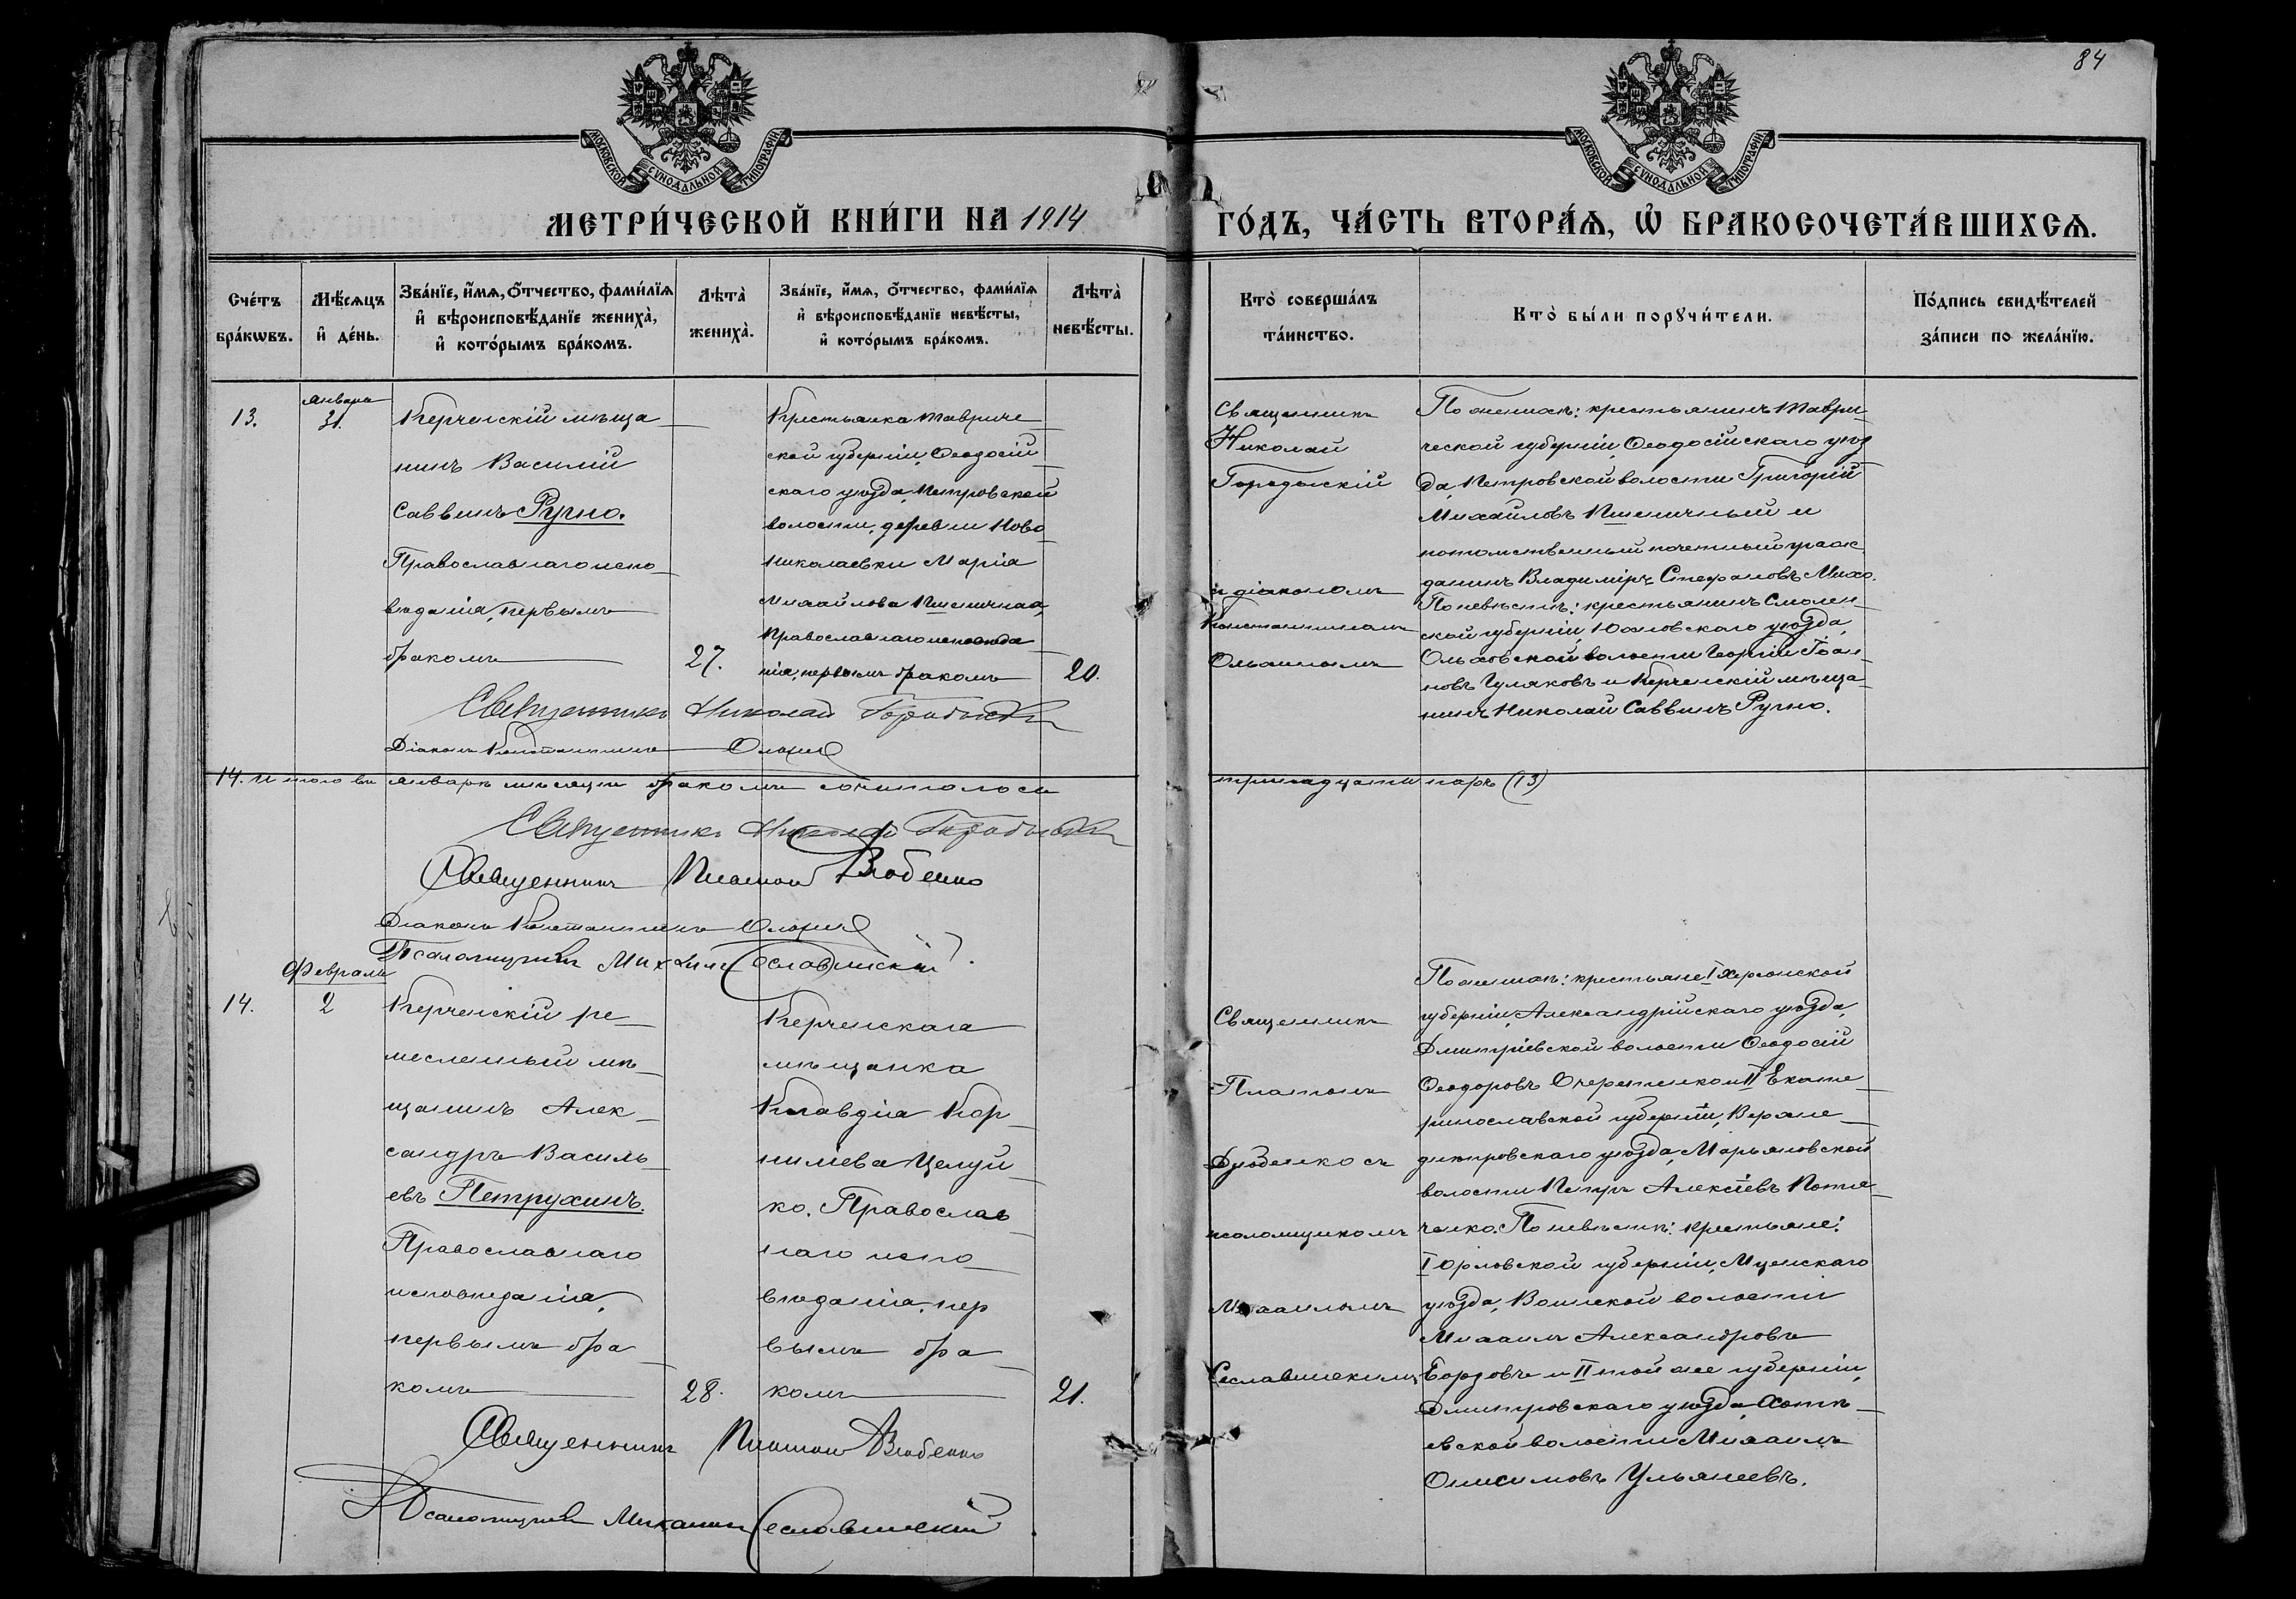 84
МОСКОВСКОЙ СУНОДАЛЬНОЙ ТИПОГРАФІИ
МОСКОВСКОЙ СУНОДАЛЬНОЙ ТИПОГРАФІИ
МЕТРИ́ЧЕСКОЙ КНИ́ГИ НА 1914
ГО́ДЪ, ЧА́СТЬ ВТОРА́Ѧ, Ѽ БРАКОСОЧЕТА́ВШИХСѦ.
Сче́тъ
бра́кѡвъ.
Мѣ́сѧцъ
и҆ де́нь.
Зва́нїе, и҆́мѧ, ѻ҆́тчество, фами́лїѧ
и҆ вѣроисповѣ́данїе жениха̀,
и҆ кото́рымъ бра́комъ.
Лѣта̀
жениха̀.
Зва́нїе, и҆́мѧ, ѻ҆́тчество, фами́лїѧ
и҆ вѣроисповѣ́данїе невѣ́сты,
и҆ кото́рымъ бра́комъ.
Лѣта̀
невѣ́сты.
Кто̀ соверша́лъ
та́инство.
Кто̀ бы́ли порꙋчи́тели.
По́дпись свидѣ́телей
за́писи по жела́нїю.
13.
Января
31.
Керченскій мѣща-
нинъ Василій
Саввинъ Ручно.
Православнаго испо-
вѣданія, первымъ
бракомъ
27.
Крестьянка Тавриче-
ской губерніи, Ѳеодосій-
скаго уѣзда, Петровской
волости, деревни Ново-
николаевки Марія
Михайлова Пшеничная,
Православнаго исповѣда-
нія, первымъ бракомъ
20.
Священникъ
Николай
Городыскій
и діакономъ
Константиномъ
По женихѣ: крестьянинъ Таври-
ческой губерніи, Ѳеодосійскаго уѣз
да, Петровской волости Григорій
Михайловъ Пшеничный и
потомственный почетный граж
данинъ Владиміръ Стефановъ Михо.
По невѣстѣ: крестьянинъ Смолен-
ской губерніи, Юхновскаго уѣзда,
Ольховской волости Георгій Іоан-
новъ Гуляковъ и Керченскій мѣща-
нинъ Николай Саввинъ Ручно.
Священникъ Николай Городыскій
Діаконъ Константинъ
14. Итого въ январѣ мѣсяцѣ бракомъ сочиталось
тринадцати паръ (13)
Священникъ Николай Городыскій
Священникъ Платонъ Дзюбенко
Діаконъ Константинъ
Псаломщикъ Михаилъ Сеславинскій
Февраль
14.
2
Керченскій ре-
месленный мѣ-
щанинъ Алек-
сандръ Василь-
евъ Петрухинъ.
Православнаго
исповѣданія,
первымъ бра-
комъ
28.
Керченская
мѣщанка
Клавдія Кор-
ниліева Целуй-
ко. Православ-
наго испо-
вѣданія, пер
вымъ бра-
комъ
21.
Священникъ
Платонъ
Дзюбенко съ
псаломщикомъ
Михаиломъ
Сеславинскимъ
По женихѣ: крестьяне I Херсонской
губерніи, Александрійскаго уѣзда,
Дмитріевской волости Ѳеодосій
Ѳеодоровъ Очеретенко и II Екате-
ринославской губерніи, Верхне-
днѣпровскаго уѣзда, Марьяновской
волости Петръ Алексѣевъ Потие-
ченко. По невѣстѣ: крестьяне:
I Орловской губерніи, Мценскаго
уѣзда, Воинской волости
Михаилъ Александровъ
Борзовъ и II той же губерніи,
Дмитровскаго уѣзда, Хотѣ-
евской волости Михаилъ
Онисимовъ Ульянеевъ.
Священникъ Платонъ Дзюбенко
Псаломщикъ Михаилъ Сеславинскій